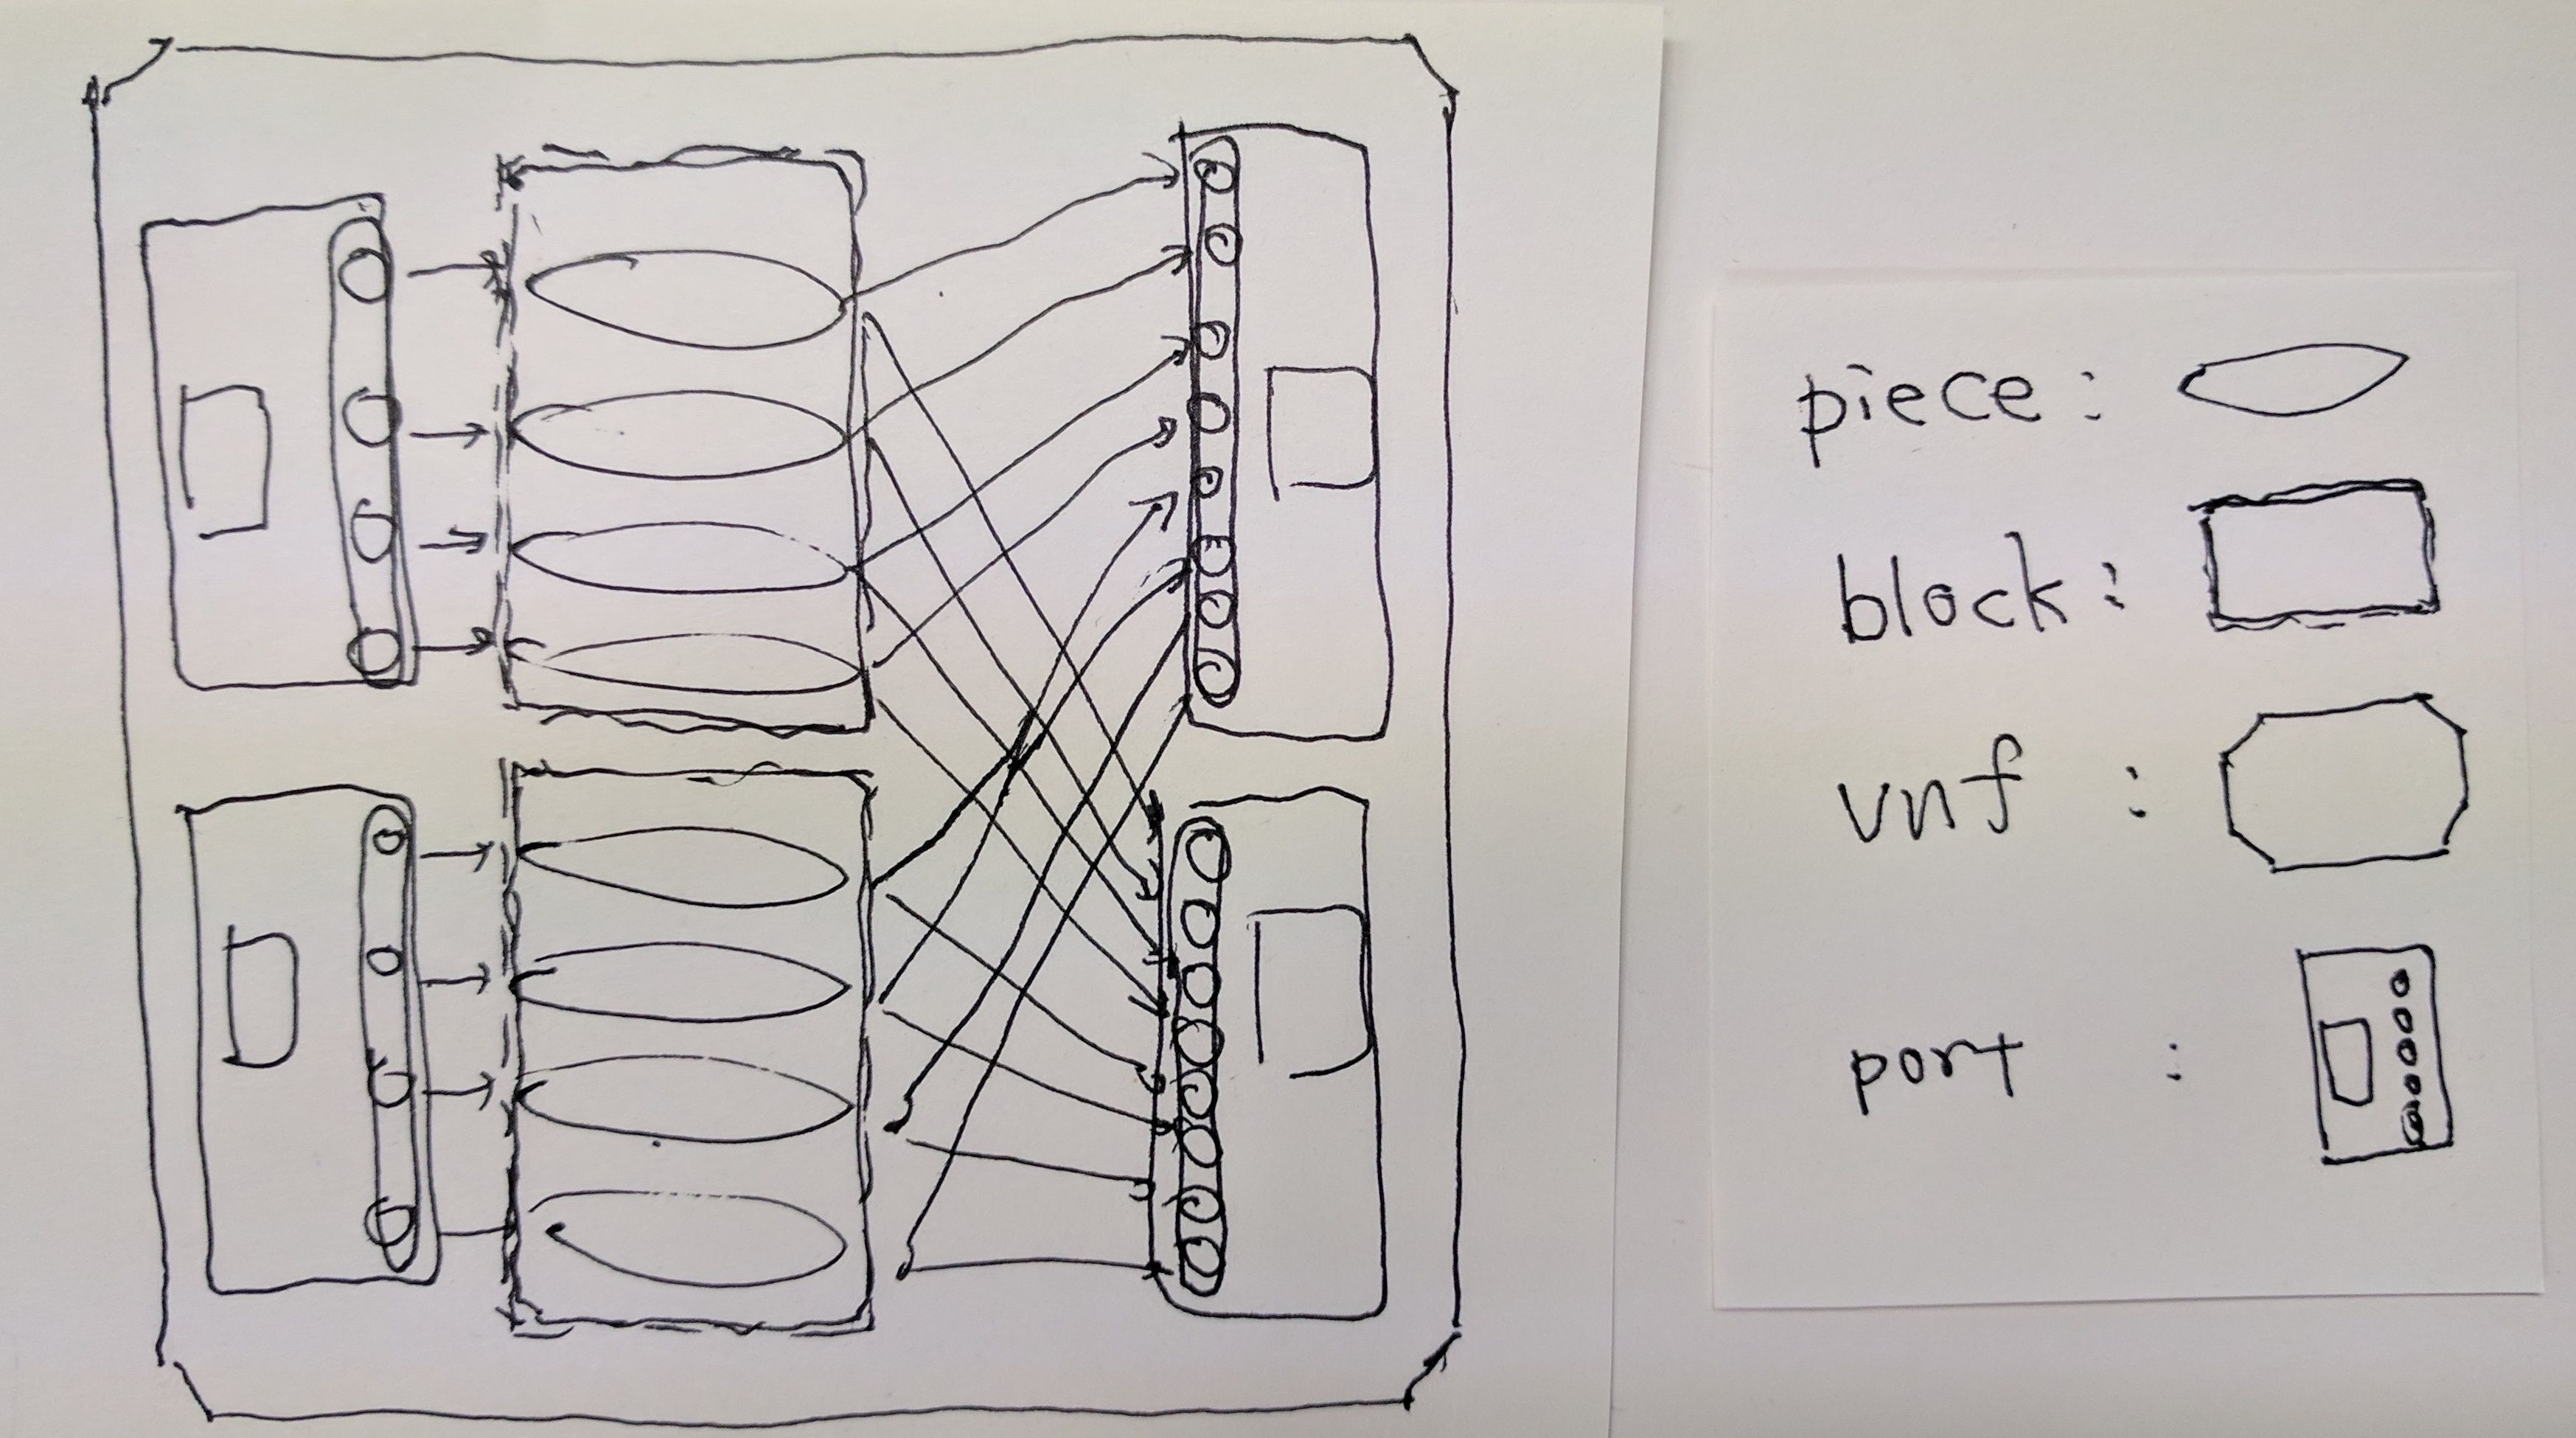 piece :
block :
vnf :
port :